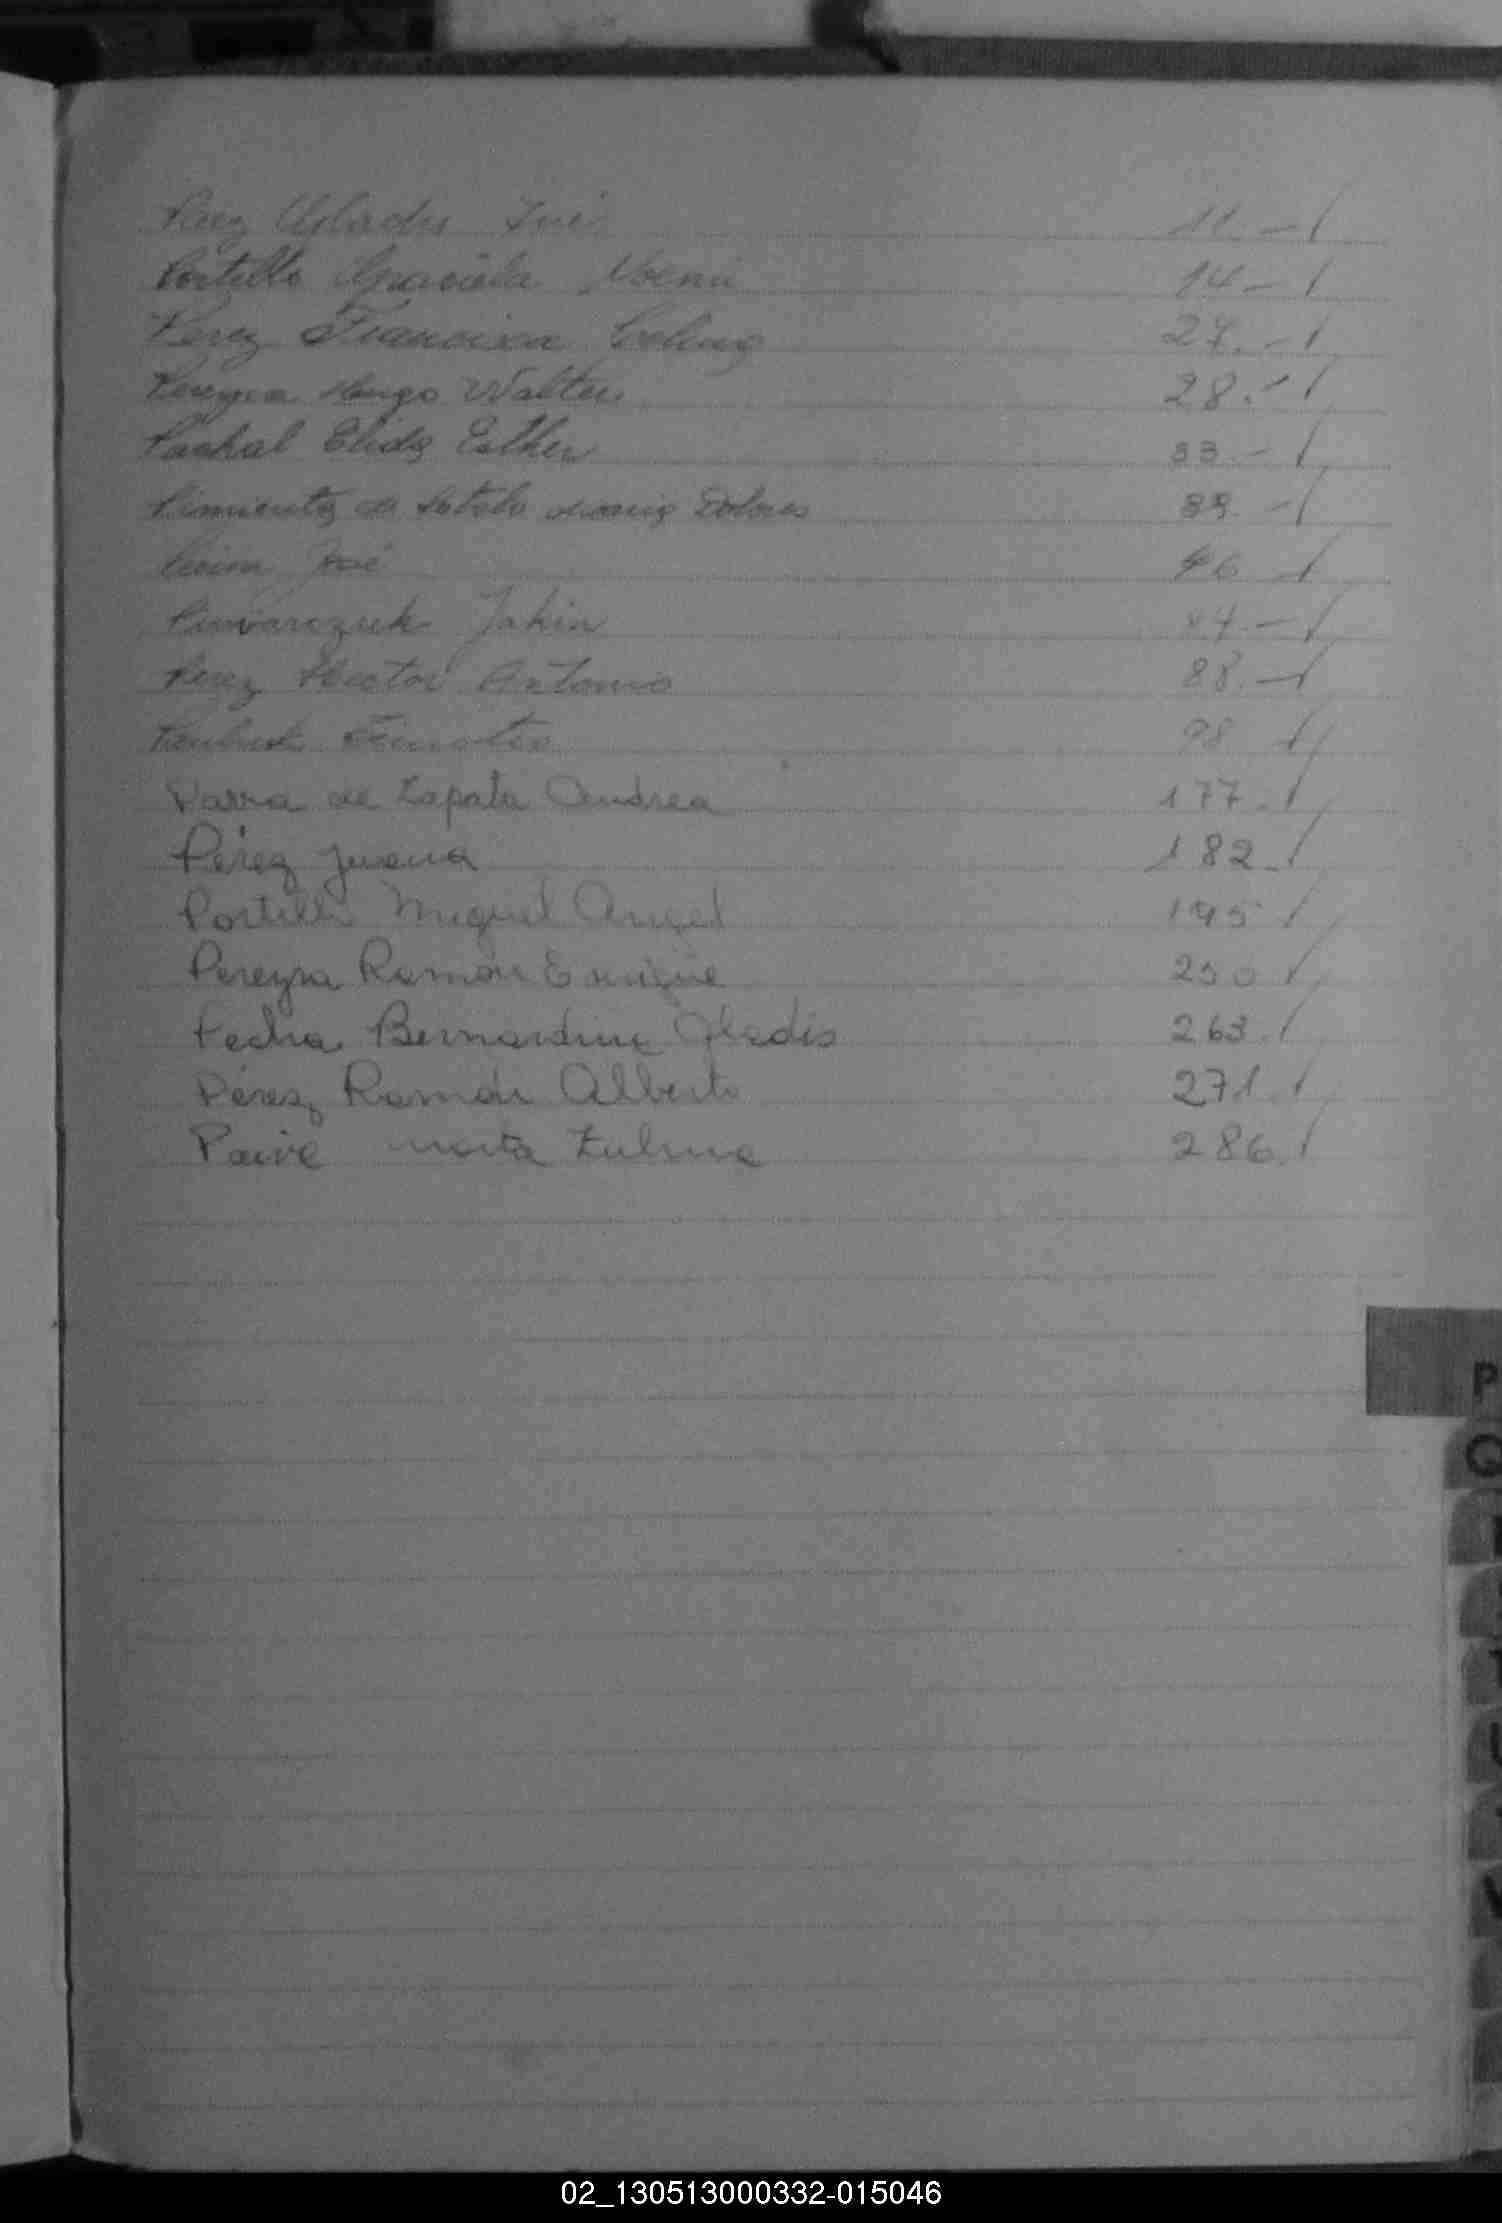 Perez Gladys Inés 11.-
Portillo Graciela Noemi 14.-
Perez Francisca 27.-
Pereyra Hugo Walter 28.-
Elida Esther 33.-
Pimienta de Sotelo Dolores 39.-
José 46
Piwarczuk 84.-
Perez Hector Antonio 88.-
98
Parra de Zapata Andrea 177.
Pérez Juana 182.
Portillo Miguel Angel 195
Pereyra Ramón Enrique 250
Bernardina Gladis 263.
Pérez Ramón Alberto 271.
Paiva Marta Zulma 286.
P
Q
T
U
V
02_130513000332-015046